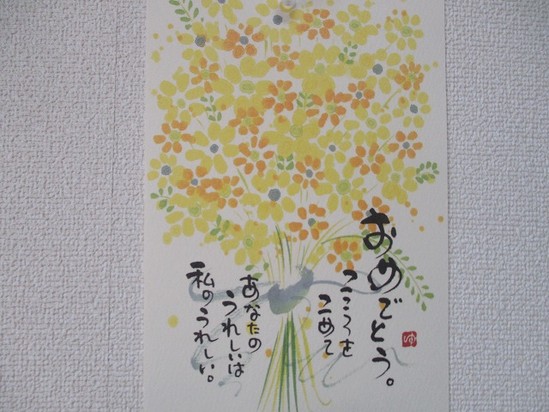 おめでとう。
こころを
こめて
あなたの
うれしいは
私のうれしい。